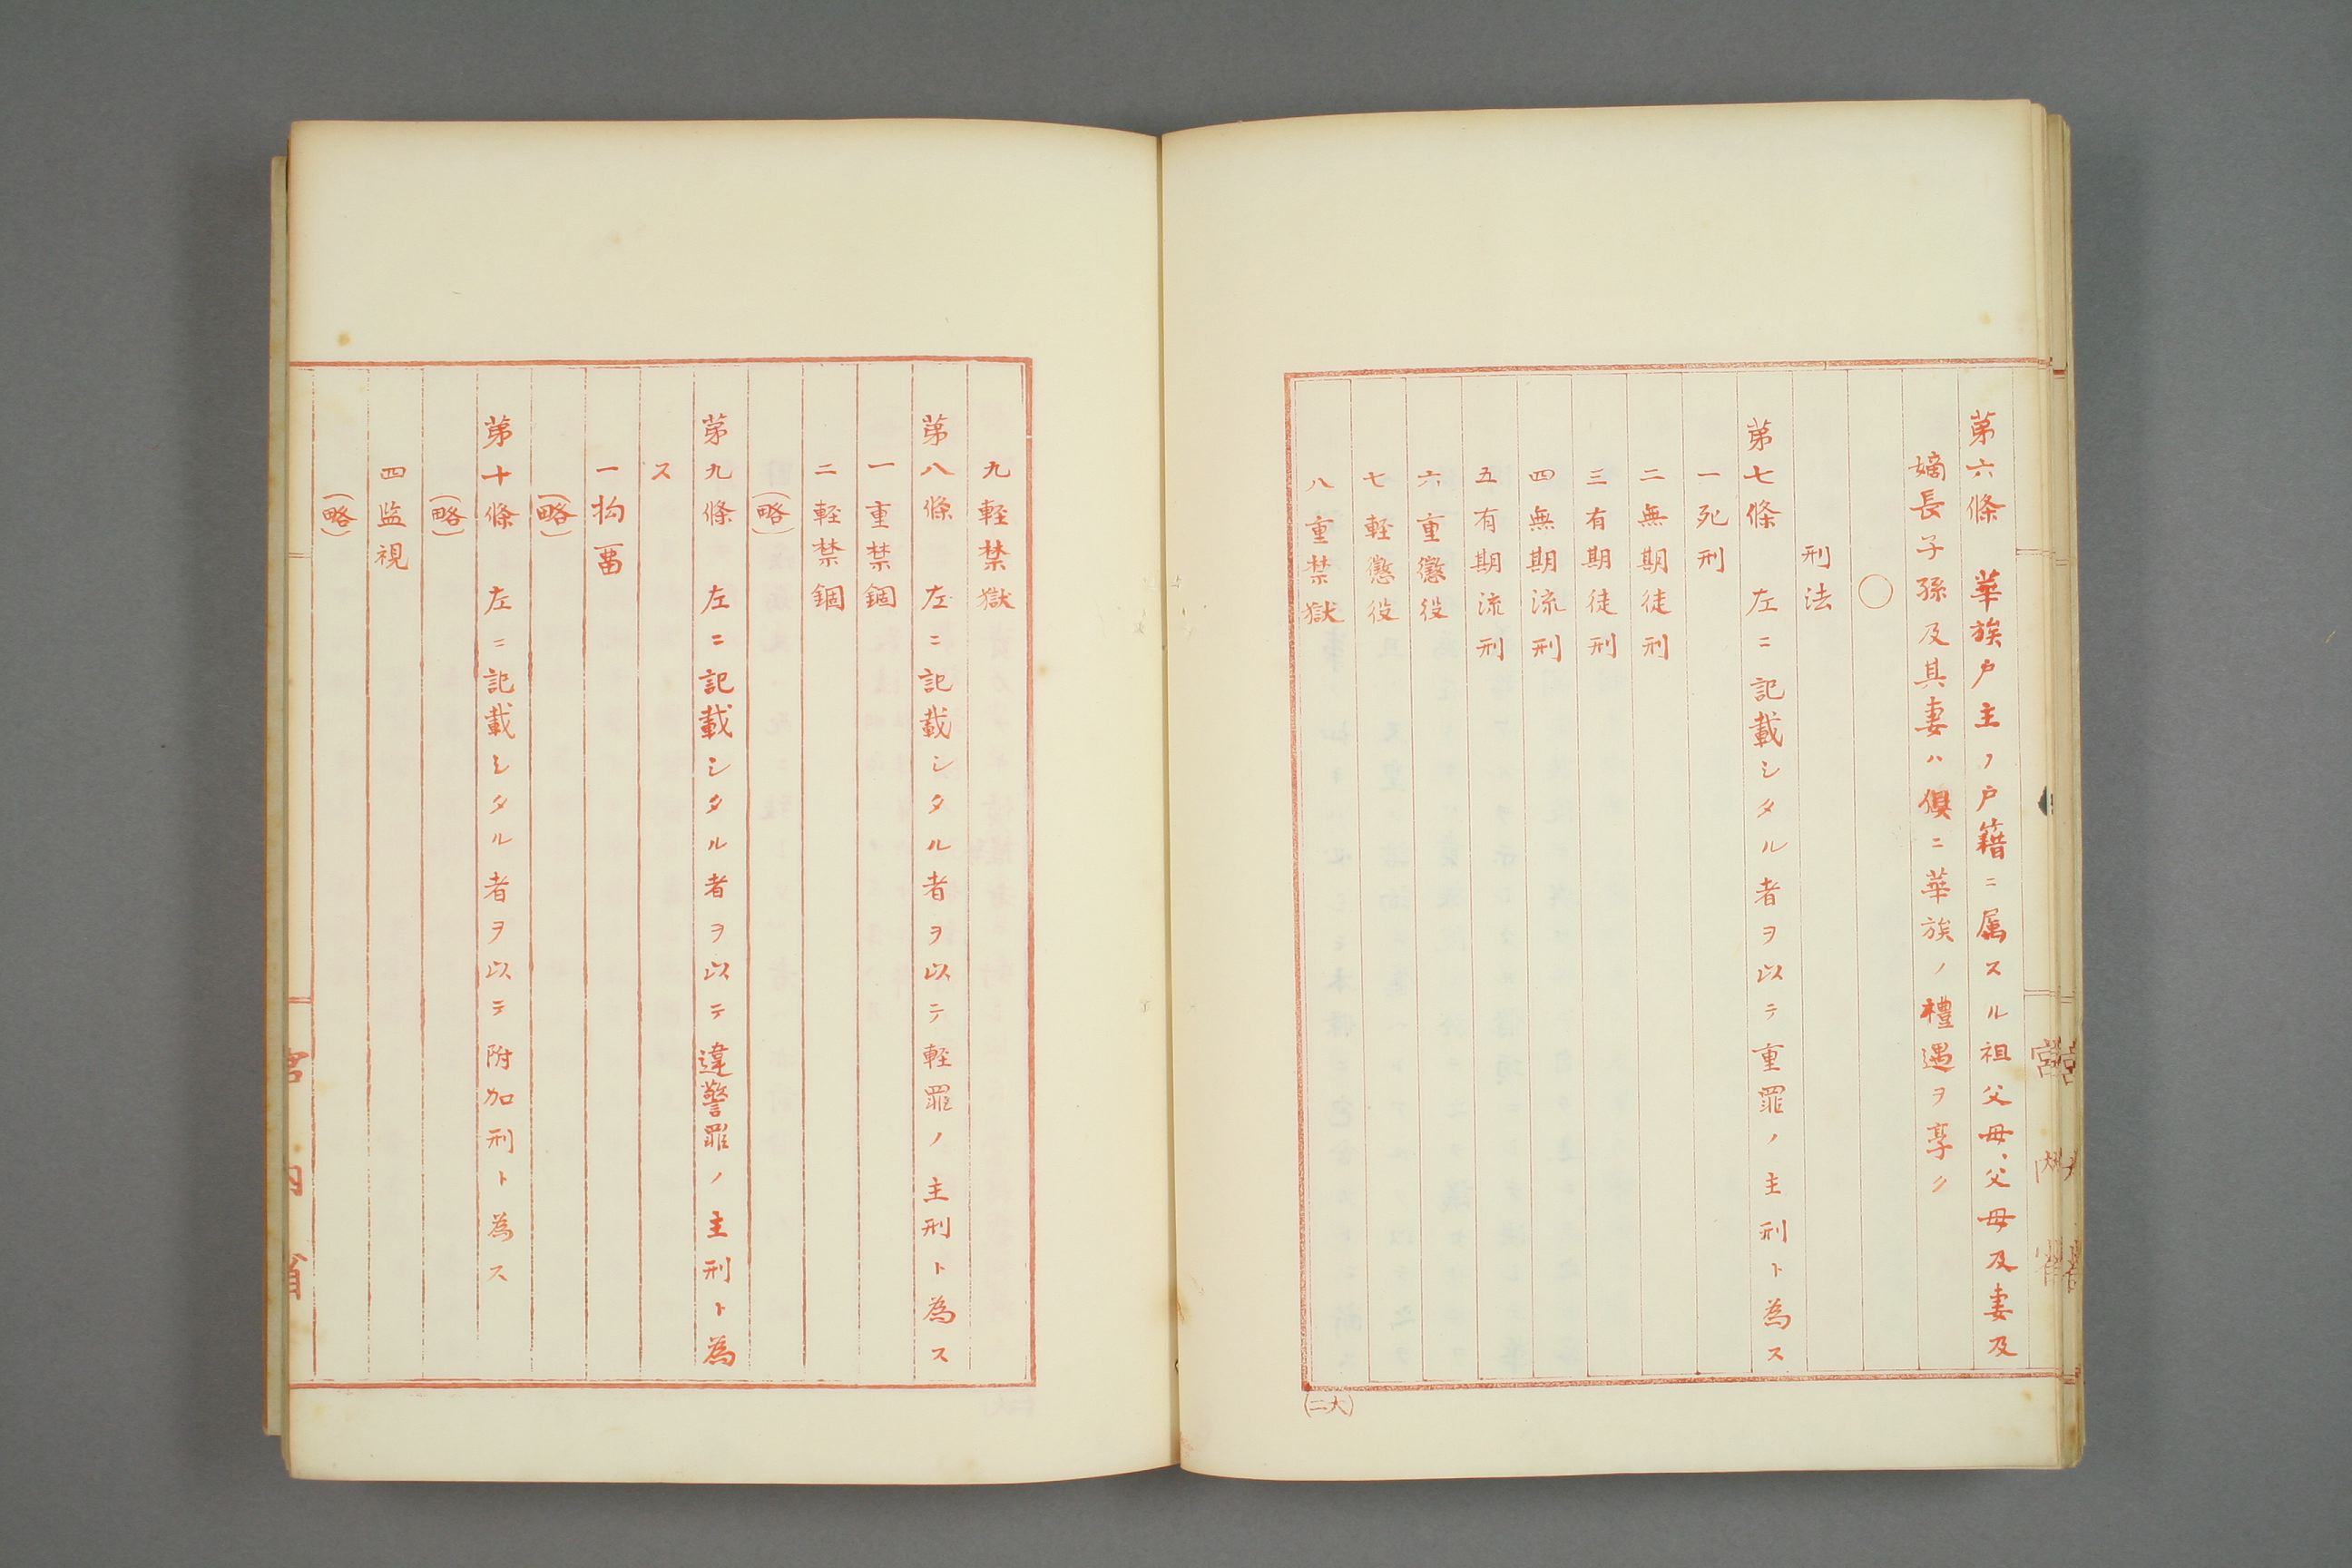 第六條　華族戸主ノ戸籍ニ属スル祖父母、父母及妻及
嫡長子孫及其妻ハ俱ニ華族ノ禮遇ヲ享ク
○
刑法
第七條　左ニ記載シタル者ヲ以テ重罪ノ主刑ト為ス
一死刑
二無期徒刑
三有期徒刑
四無期流刑
五有期流刑
六重懲役
七軽懲役
八重禁獄
(二六)
宮内省
九軽禁獄
第八條　左ニ記載シタル者ヲ以テ軽罪ノ主刑ト為ス
一重禁錮
二軽禁錮
(略)
第九條　左ニ記載シタル者ヲ以テ違警罪ノ主刑ト為
ス
一拘畱
(略)
第十條　左ニ記載シタル者ヲ以テ附加刑ト為ス
(略)
四監視
(略)
宮内省